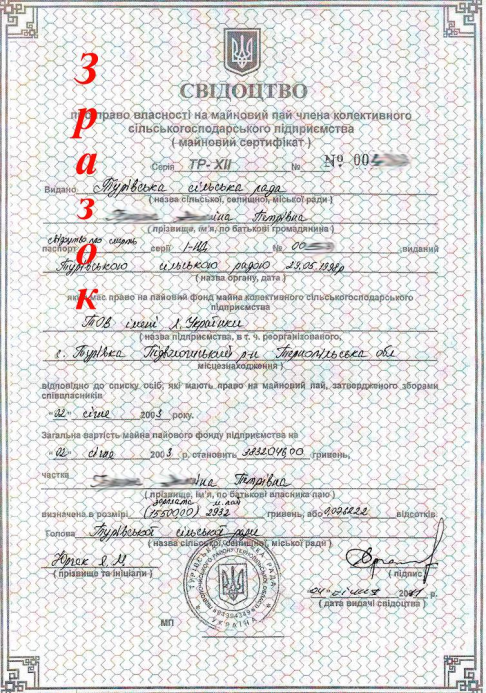 Зразок
СВІДОЦТВО
про право власності на майновий пай члена колективного
сільськогосподарського підприємства
( майновий сертифікат )
Серія ТР- XII № № 00
Видано Турівська сільська рада
( назва сільської, селищної, міської ради )
іна Петрівна
( прізвище, ім'я, по батькові громадянина )
свідоцтво про смерть
паспорт серії І-ИД № 00 ,виданий
Турівською сільською радою 29.05.1998р
( назва органу, дата )
який має право на пайовий фонд майна колективного сільськогосподарського
підприємства
ТОВ імені Л.Українки
( назва підприємства, в т. ч. реорганізованого,
с. Турівка Підволочиський р-н Тернопільська обл
місцезнаходження )
відповідно до списку осіб, які мають право на майновий пай, затвердженого зборами
співвласників
"02" січня 2003 року.
Загальна вартість майна пайового фонду підприємства на
"02" січня 2003 р. становить гривень,
частка іна Петрівна
( прізвище, ім'я, по батькові власника паю )
визначена в розмірі 2932 гривень, або відсотків.
Голова Турівської сільської ради
( назва сільської, селищної, міської ради )
( прізвище та ініціали ) ( підпис )
р.
( дата видачі свідоцтва )
МП
УКРАЇНА